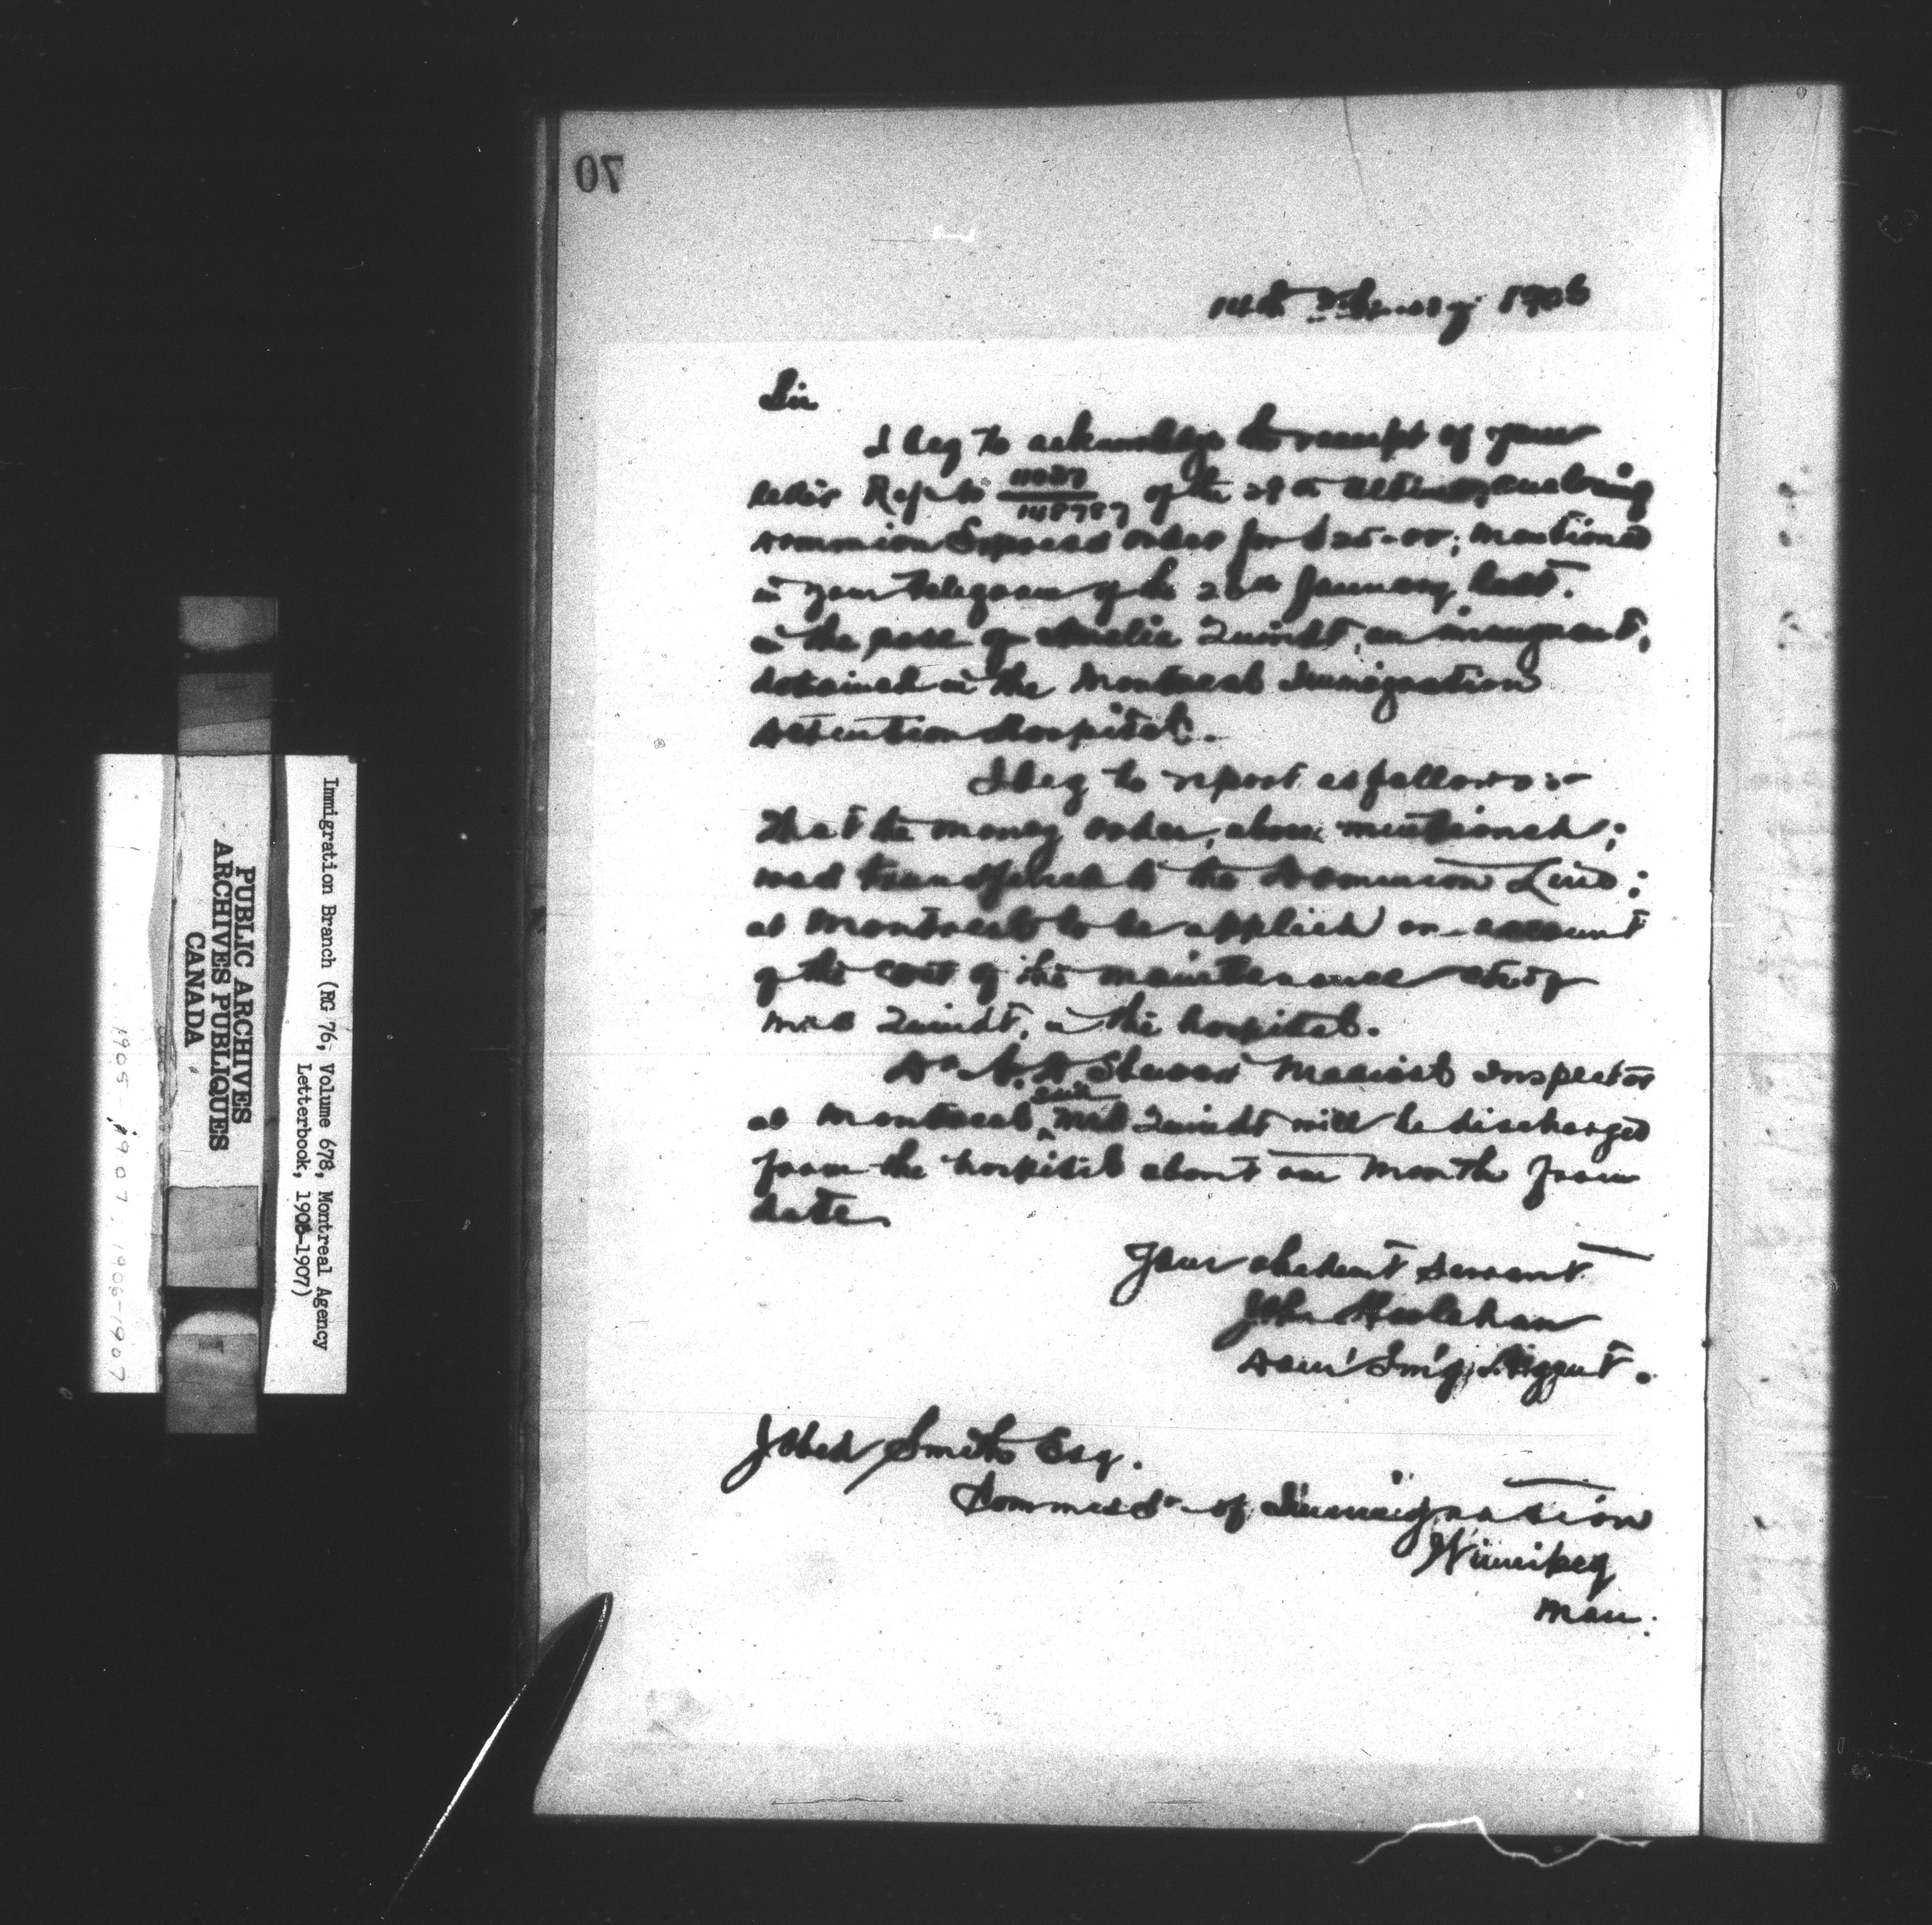 70
14th February 1906
Sir
I beg to acknowledge the receipt of your
letter Refce to 11037/148787 of the 29th ultimo, enclosing
Dominion Express order for $25-00; mentioned
in your telegram of the 26th January last.
in the case of Amelia Quindt, an immigrant,
detained in the Montreal Immigration
Detention Hospital.
I beg to report as follows:-
That the money order, above mentioned;
was transferred to the Dominion Line;
at Montreal to be applied on account
of the cost of the maintenance etc of
Miss Quindt, in the hospital.
Dr Medical Inspector
at Montreal, Miss Quindt will be discharged
from the hospital about one month from
date
Your obedient Servant
John Hoolahan
Dom' Im'g; Agent.
J Obed Smith Esq.
Commissr of Immigration
Winnipeg
Man.
Immigration Branch (RG 76, Volume 678, Montreal Agency
Letterbook, 1905-1907)
PUBLIC ARCHIVES
ARCHIVES PUBLIQUES
CANADA
1905-1907, 1906-1907